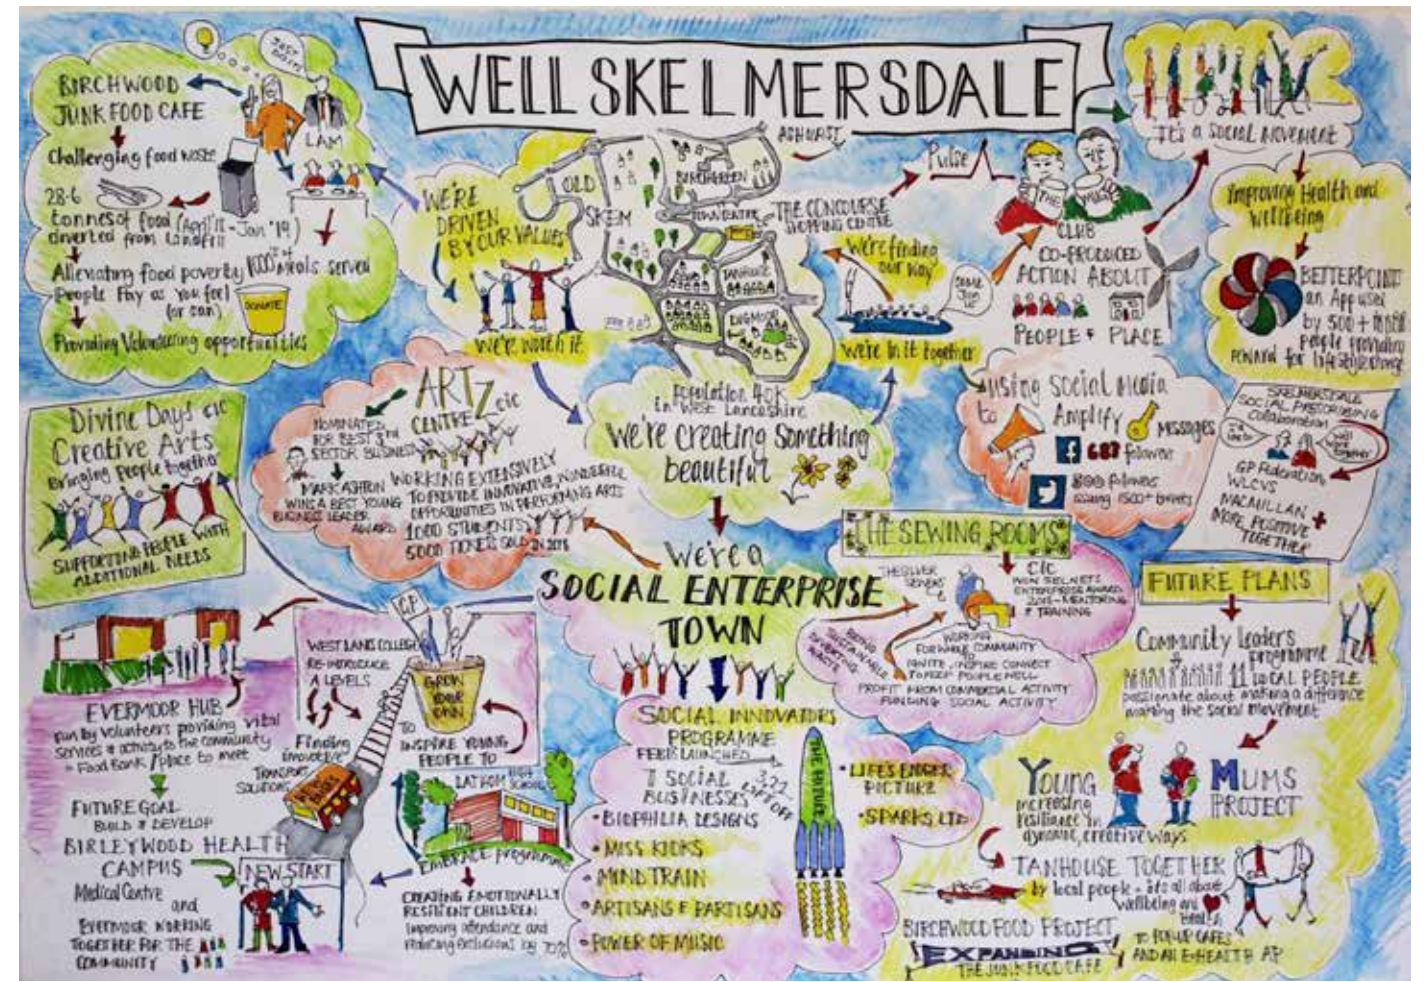 WELL SKELMERSDALE
JUST DO IT!
BIRCHWOOD
JUNK FOOD CAFE
LAM
Challenging food waste
28.6
tonnes of food (April 18 - Jan '19)
diverted from Landfill
Alleviating food poverty 1000's of meals served
People Pay as You feel
(or can)
DONATE
Providing Volunteering opportunities
WE'RE
DRIVEN
BY OUR VALUES
We're worth it
OLD
SKEM
ASHURST
BIRCHGREEN
TOWN CENTRE
THE CONCOURSE
SHOPPING CENTRE
TANHOUSE
DIGMOOR
We're finding
our way
COME
JOIN
US
We're in it together
Pulse
THE
MUG
CLUB
CO-PRODUCED
ACTION ABOUT
PEOPLE + PLACE
It's a SOCIAL MOVEMENT
Improving Health and
Wellbeing
BETTERPOINTS
an App used
by 500+
people providing
reward for lifestyle change
Divine Days cic
Creative Arts
Bringing People together
SUPPORTING PEOPLE WITH
ADDITIONAL NEEDS
ARTZ
CENTRE cic
NOMINATED
FOR BEST 3RD
SECTOR BUSINESS
MARK ASHTON
WINS A BEST YOUNG
BUSINESS LEADER
AWARD
WORKING EXTENSIVELY
TO PROVIDE INNOVATIVE, WONDERFUL
OPPORTUNITIES IN PERFORMING ARTS
1000 STUDENTS
5000 TICKETS SOLD IN 2018
Population 40K
in West Lancashire
We're creating something
beautiful
using social media
to Amplify messages
687 followers
800 followers
issuing 1500+ tweets
SKELMERSDALE
SOCIAL PRESCRIBING
collaboration
GP Federation
WLCVS
MACMILLAN +
MORE POSITIVE
TOGETHER
We're a
SOCIAL ENTERPRISE
TOWN
THE SEWING ROOMS
CIC
THE SILVER
SEWERS
WIN SELNETS
ENTERPRISE AWARD
2018 - MENTORING
& TRAINING
BEING
SUSTAINABLE
DIVERTING
WASTE
WORKING
FOR/WITH COMMUNITY
TO
IGNITE, INSPIRE CONNECT
TO KEEP PEOPLE WELL
PROFIT FROM COMMERCIAL ACTIVITY
FUNDING SOCIAL ACTIVITY
FUTURE PLANS
Community Leaders
programme
11 LOCAL PEOPLE
passionate about making a difference
making the social movement
EVERMOOR HUB
run by volunteers providing vital
services & activity to the community
+ Food Bank / place to meet
FUTURE GOAL
BUILD & DEVELOP
BIRLEYWOOD HEALTH
CAMPUS
Medical Centre
and
EVERMOOR WORKING
TOGETHER FOR THE
COMMUNITY
WEST LANCS COLLEGE
RE-INTRODUCE
A LEVELS
GP
GROW
YOUR
OWN
TO
INSPIRE YOUNG
PEOPLE TO
Finding
innovative
TRANSPORT
SOLUTIONS
NEW START
LATHOM HIGH
SCHOOL
EMBRACE programme
CREATING EMOTIONALLY
RESILIENT CHILDREN
Improving attendance and
reducing exclusions by 70%
SOCIAL INNOVATORS
PROGRAMME
FEB 18 LAUNCHED
7 SOCIAL
BUSINESSES
3,2,1
LIFT OFF
• BIOPHILIA DESIGNS
• MISS KICKS
• MINDTRAIN
• ARTISANS & PARTISANS
• POWER OF MUSIC
THE FUTURE
• LIFE'S BIGGER
PICTURE
• SPARKS LTD
YOUNG MUMS
PROJECT
increasing
resilience in
dynamic, creative ways
TANHOUSE TOGETHER
by local people - it's all about
wellbeing and
health
BIRCHWOOD FOOD PROJECT
EXPANDING
THE JUNK FOOD CAFE
TO POP UP CAFES
AND AN E-HEALTH AP